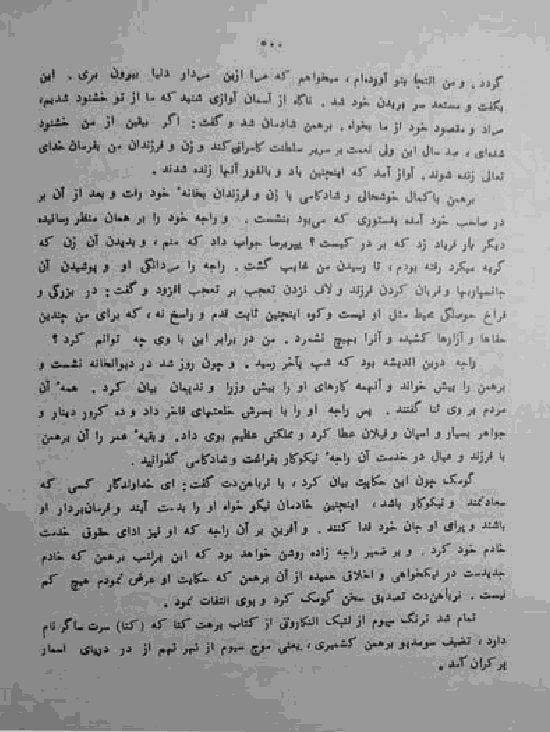 ۵۰۰
گردد. و من التجا بتو آورده‌ام، میخواهم که مرا ازین دنیا بیرون بری. این
بگفت و مستعد سر بریدن خود شد. ناگاه از آسمان آوازی شنید که ما از تو خشنود شدیم،
مراد و مقصود خود از ما بخواه. برهمن شادمان شد و گفت: اگر بیقین از من خشنود
شده‌ای، صد سال این ولی نعمت بر سریر سلطنت کامرانی کند و زن و فرزندان من بفرمان خدای
تعالی زنده شوند. آواز آمد که اینچنین باد و بالفور آنها زنده شدند.
برهمن باکمال خوشحالی و شادکامی با زن و فرزندان بخانهٔ خود رفت و بعد از آن بر
در صاحب خود آمده بدستوری که می‌بود بنشست. و راجه خود را بر همان منظر رسانیده
دیگر بار فریاد زد که بر در کیست؟ بیربرصا جواب داد که منم، و بدیدن آن زن که
گریه میکرد رفته بودم، تا رسیدن من غایب گشت. راجه را مردانگی او و پوشیدن آن
جانسپاریها و قربان کردن فرزند و لاف نزدن تعجب بر تعجب افزود و گفت: در بزرگی و
فراخ حوصلگی محیط مثل او نیست و کوه اینچنین ثابت قدم و راسخ نه، که برای من چندین
جفاها و آزارها کشیده و آنرا بهیچ نشمرد. من در برابر این با وی چه توانم کرد؟
راجه درین اندیشه بود که شب بآخر رسید. و چون روز شد در دیوانخانه نشست و
برهمن را پیش خواند و آنهمه کارهای او را پیش وزرا و ندیمان بیان کرد. همهٔ آن
مردم بر وی ثنا گفتند. پس راجه او را با پسرش خلعتهای فاخر داد و ده کرور دینار و
جواهر بسیار و اسپان و فیلان عطا کرد و مملکتی عظیم بوی داد. و بقیهٔ عمر را آن برهمن
با فرزند و عیال در خدمت آن راجهٔ نیکوکار بفراغت و شادکامی گذرانید.
گومک چون این حکایت بیان کرد، با نرباهن‌دت گفت: ای خداوندگار کسی که
سعادتمند و نیکوکار باشد، اینچنین خادمان نیکو خواه او را بدست آیند و فرمان‌بردار او
باشند و برای او جان خود فدا کنند. و آفرین بر آن راجه که او نیز ادای حقوق خدمت
خادم خود کرد. و بر ضمیر راجه زاده روشن خواهد بود که این برهمن که خادم
جدیدست در نیکخواهی و اخلاق حمیده از آن برهمن که حکایت او عرض نمودم هیچ کم
نیست. نرباهن‌دت تصدیق سخن گومک کرد و بوی التفات نمود.
تمام شد ترنگ سیوم از لنبک النکاروتی از کتاب برهت کتا که (کتا) سرت ساگر نام
دارد، تصنیف سومدیو برهمن کشمیری، یعنی موج سیوم از نهر نهم از در دریای اسمار
بر کران آمد.